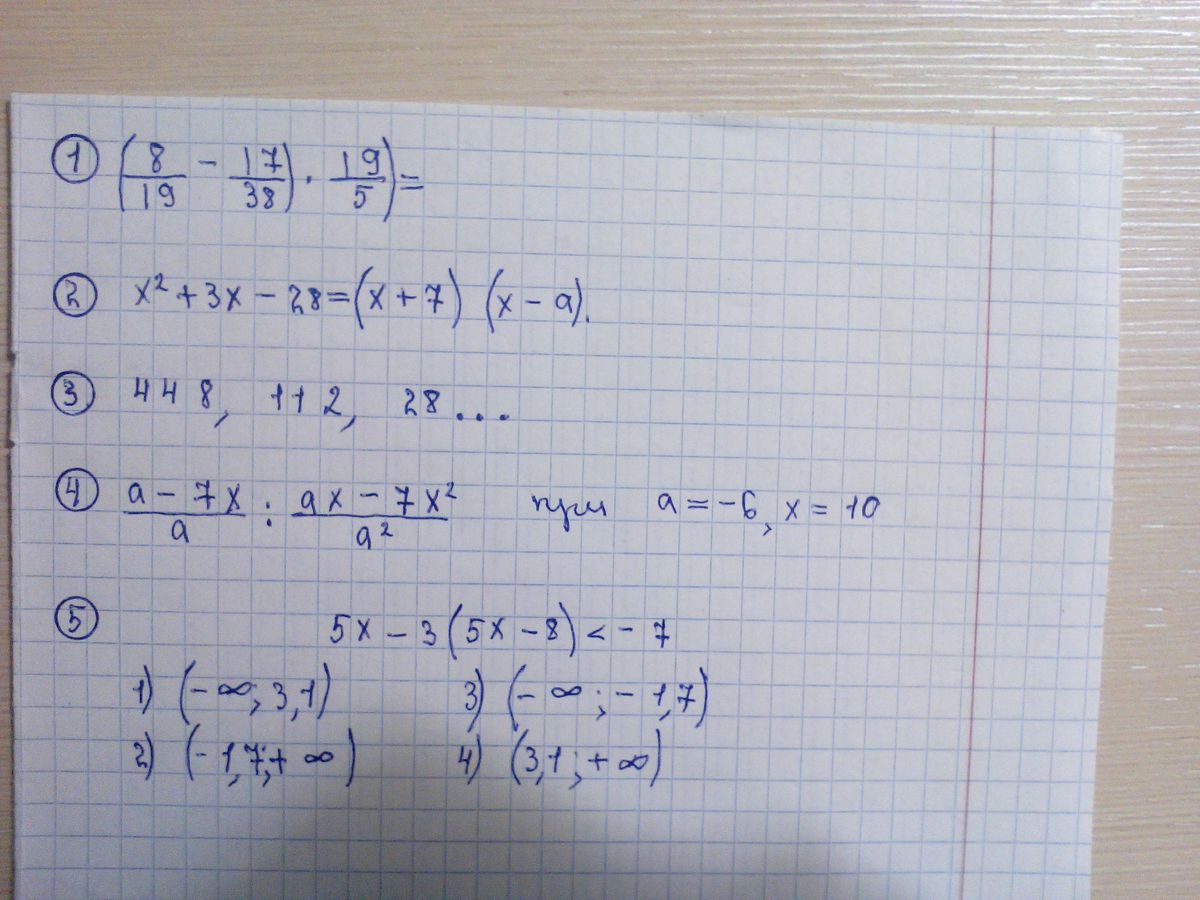 ① (8/19 - 17/38) · 19/5) =
② x² + 3x - 28 = (x + 7) (x - a).
③ 448, 112, 28 ...
④ a - 7x / a : ax - 7x² / a² при a = -6, x = 10
⑤
5x - 3(5x - 8) < - 7
1) (- ∞; 3,1) 3) (- ∞; - 1,7)
2) (- 1,7; + ∞) 4) (3,1; + ∞)